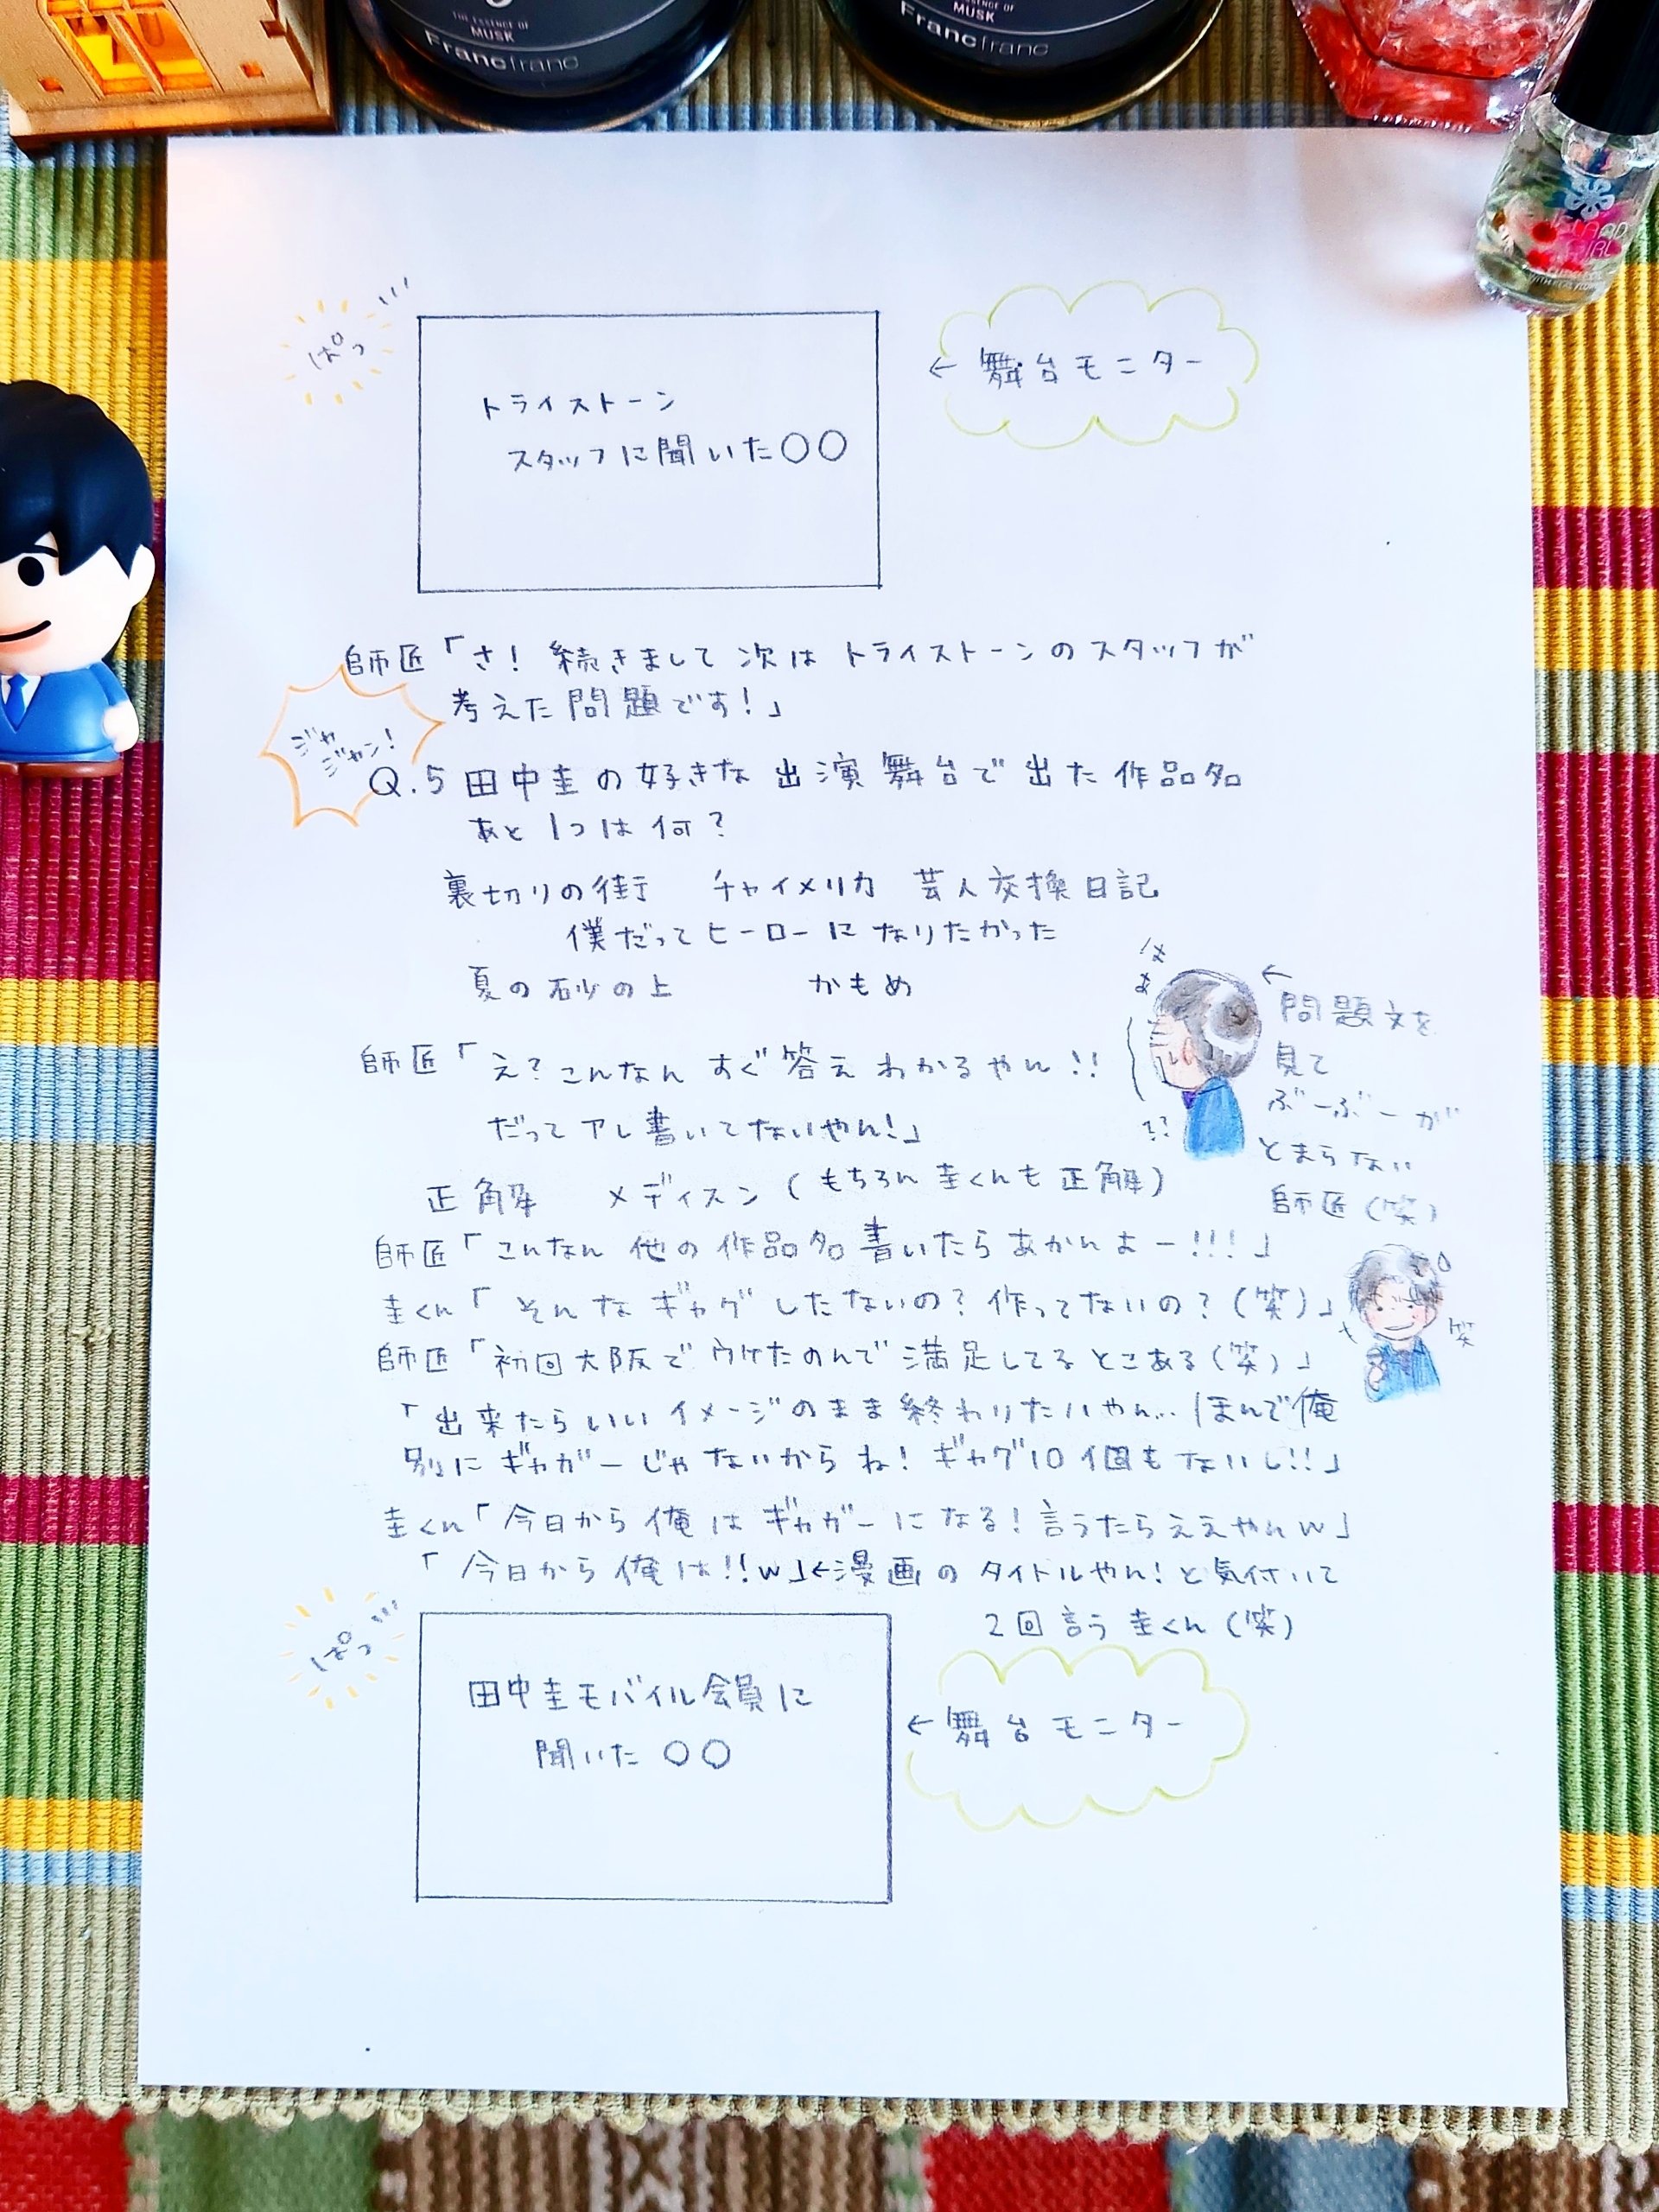 THE ESSENCE OF
MUSK
Francfranc
ESSENCE OF
MUSK
Francfranc
ぱっ
トライストーン
スタッフに聞いた〇〇
← 舞台モニター
師匠「さ! 続きまして 次は トライストーンのスタッフが
考えた問題です!」
ジャ
ジャン!
Q.5 田中圭の好きな 出演舞台で出た作品名
あと1つは何?
裏切りの街 チャイメリカ 芸人交換日記
僕だってヒーローになりたかった
夏の砂の上 かもめ
師匠「え?こんなん すぐ答えわかるやん!!
だってアレ書いてないやん!」
←
問題文を
見て
ぶーぶーが
とまらない
師匠(笑)
!?
正解 メディスン(もちろん圭くんも正解)
師匠「こんなん 他の作品名書いたらあかんよー!!!」
圭くん「そんなギャグしたないの?作ってないの?(笑)」
笑
師匠「初回大阪でウケたのんで満足してるとこある(笑)」
「出来たらいいイメージのまま終わりたいやん…ほんで俺
別にギャガーじゃないからね!ギャグ10個もないし!!」
圭くん「今日から俺はギャガーになる!言うたらええやんw」
「今日から俺は!!w」←漫画のタイトルやん!と気付いて
2回言う圭くん(笑)
ぱっ
田中圭モバイル会員に
聞いた 〇〇
← 舞台モニター